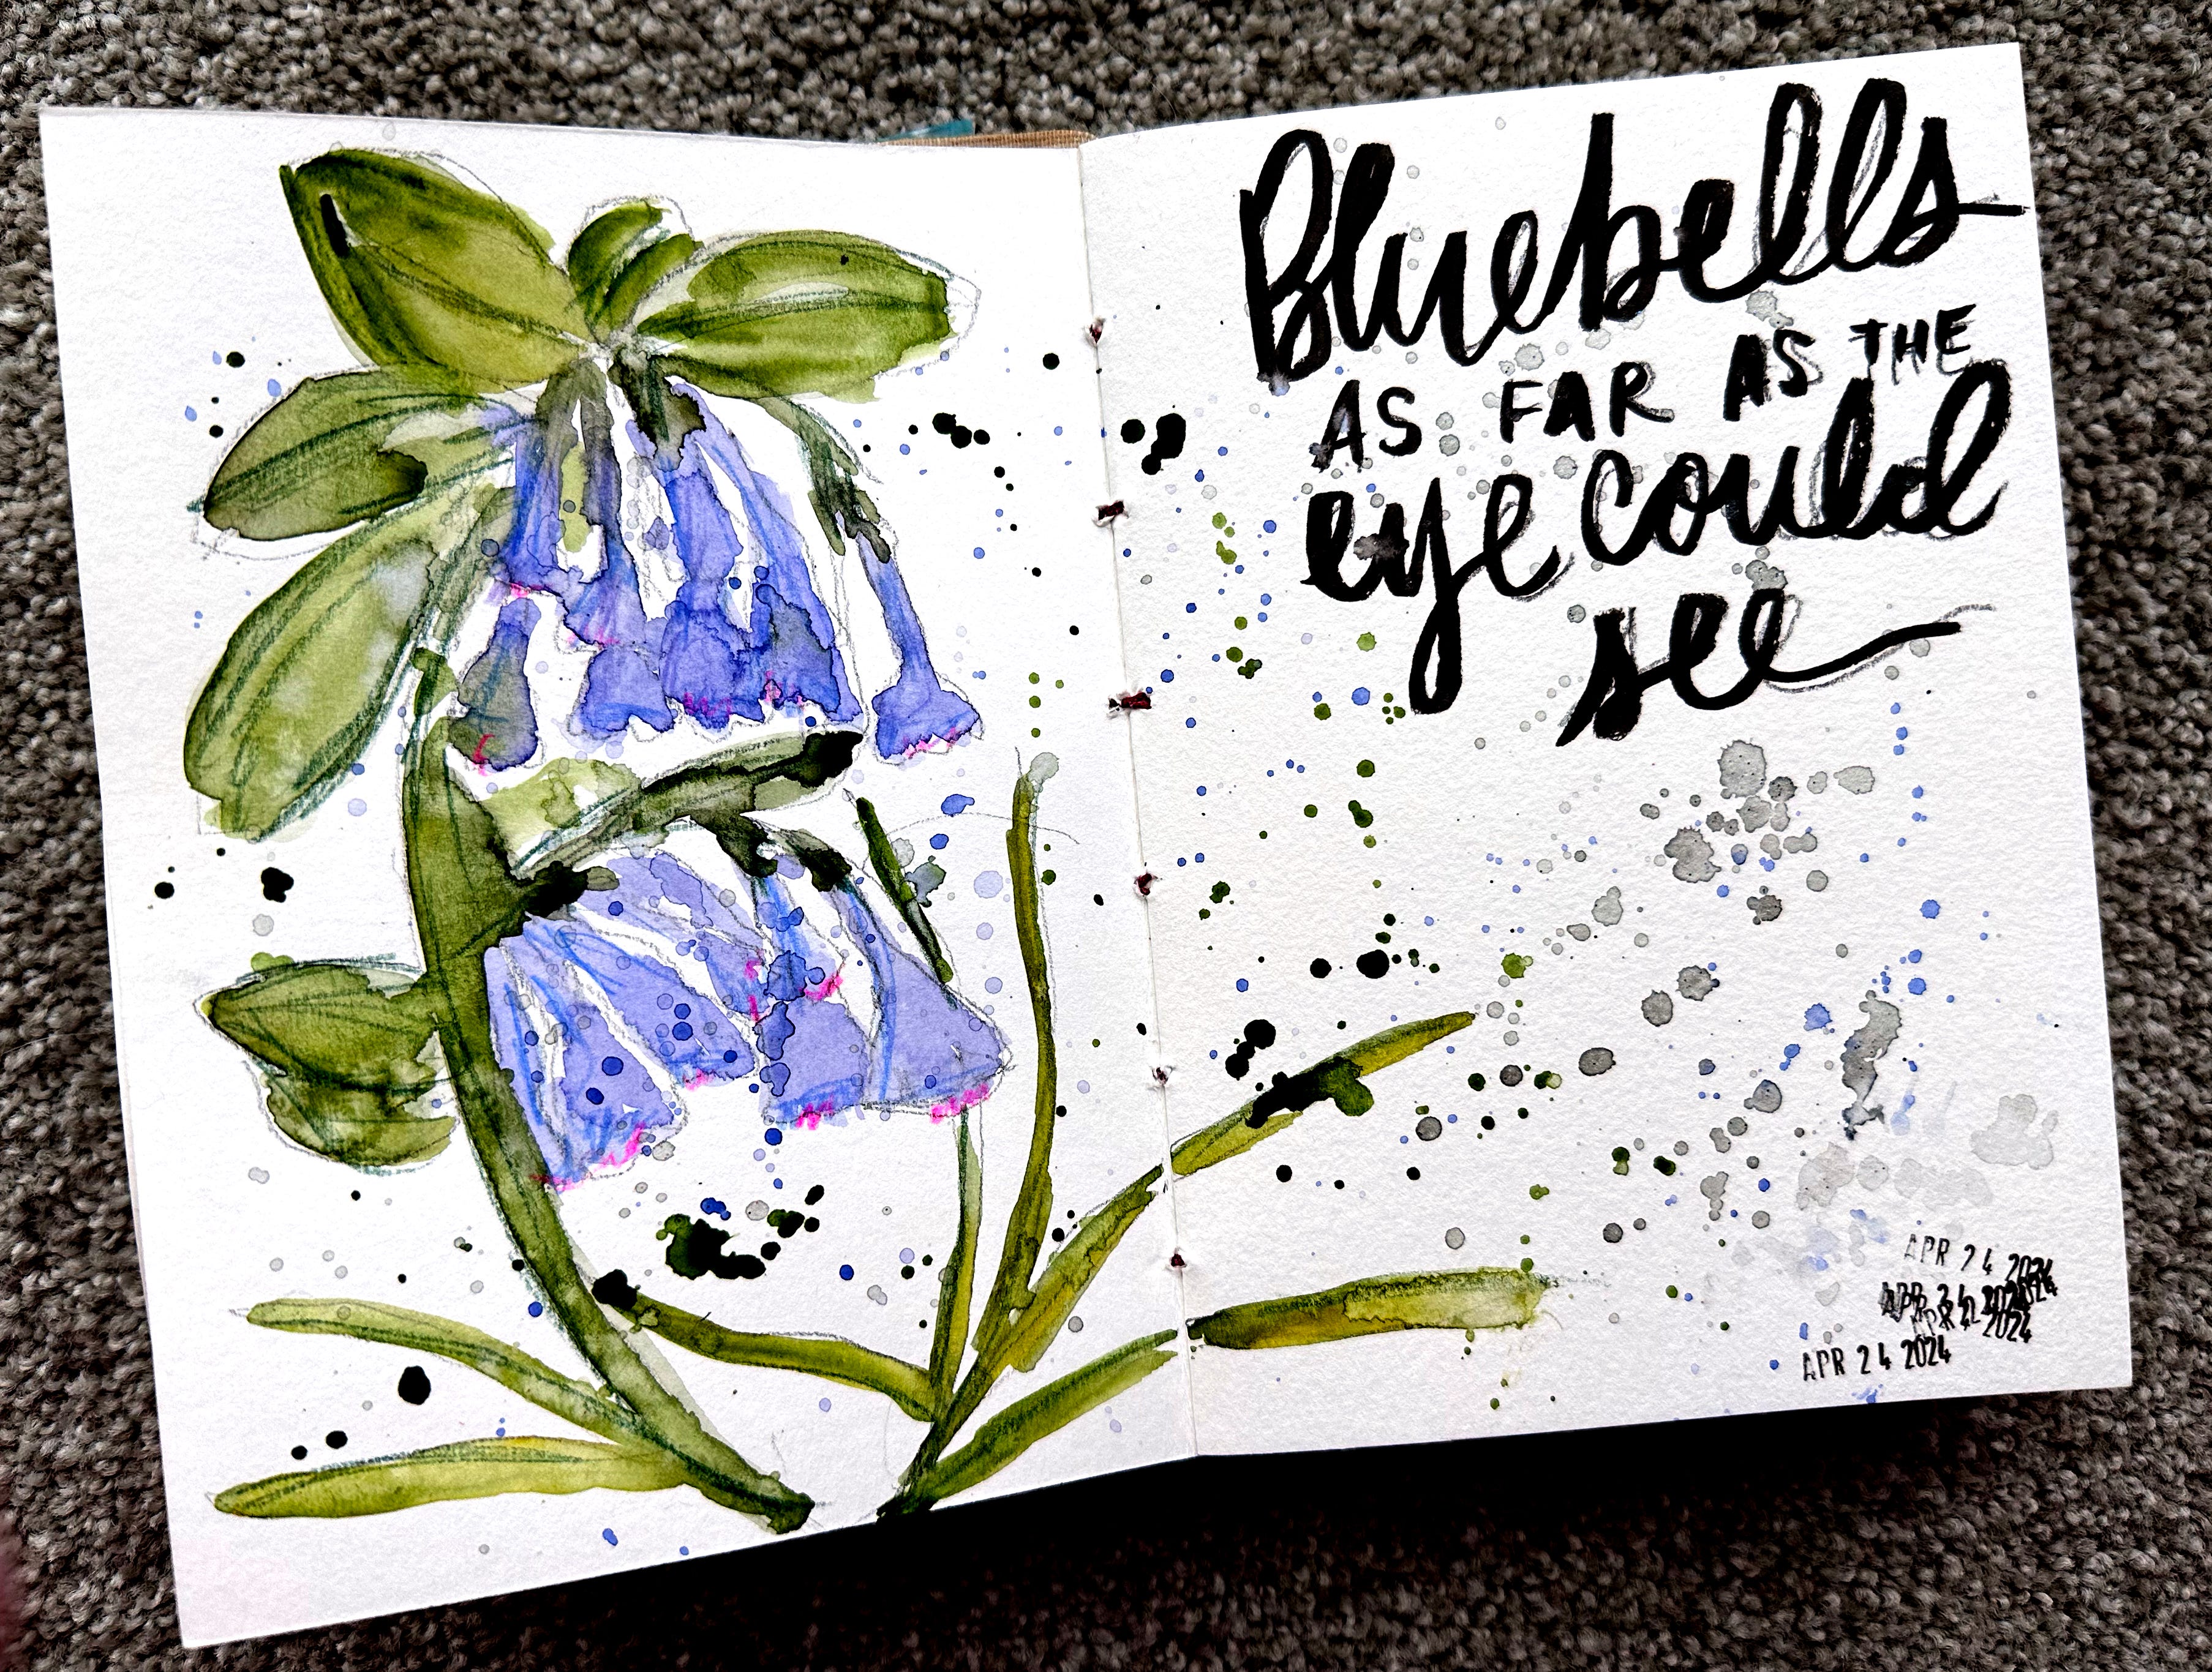 Bluebells
AS FAR AS THE
eye could
see
APR 24 2024
APR 24 2024
APR 24 2024
APR 24 2024